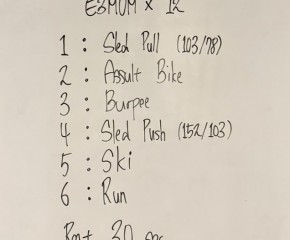 E3MOM x 12
1 : Sled Pull (103/78)
2 : Assult Bike
3 : Burpee
4 : Sled Push (152/103)
5 : Ski
6 : Run
30